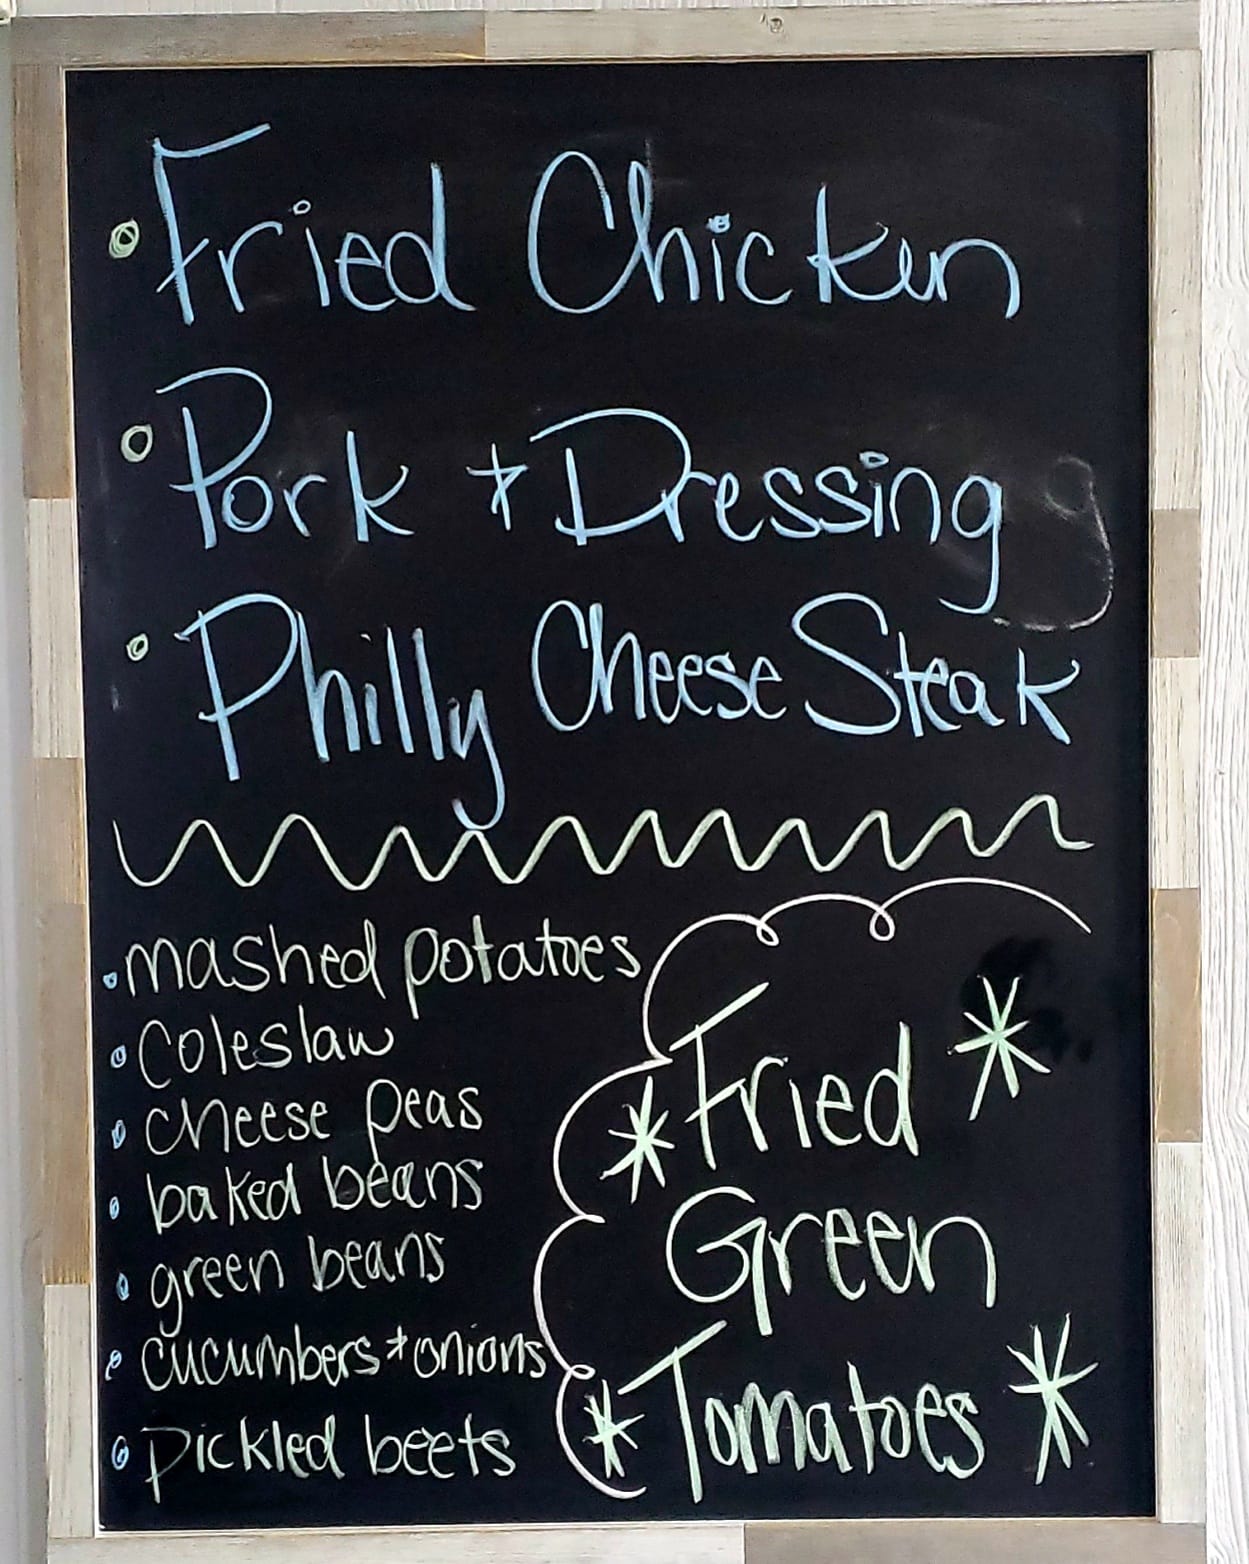 Fried Chicken
Pork + Dressing
Philly Cheese Steak
mashed potatoes
Coleslaw
cheese peas
baked beans
green beans
cucumbers + onions
pickled beets
* Fried *
Green
* Tomatoes *